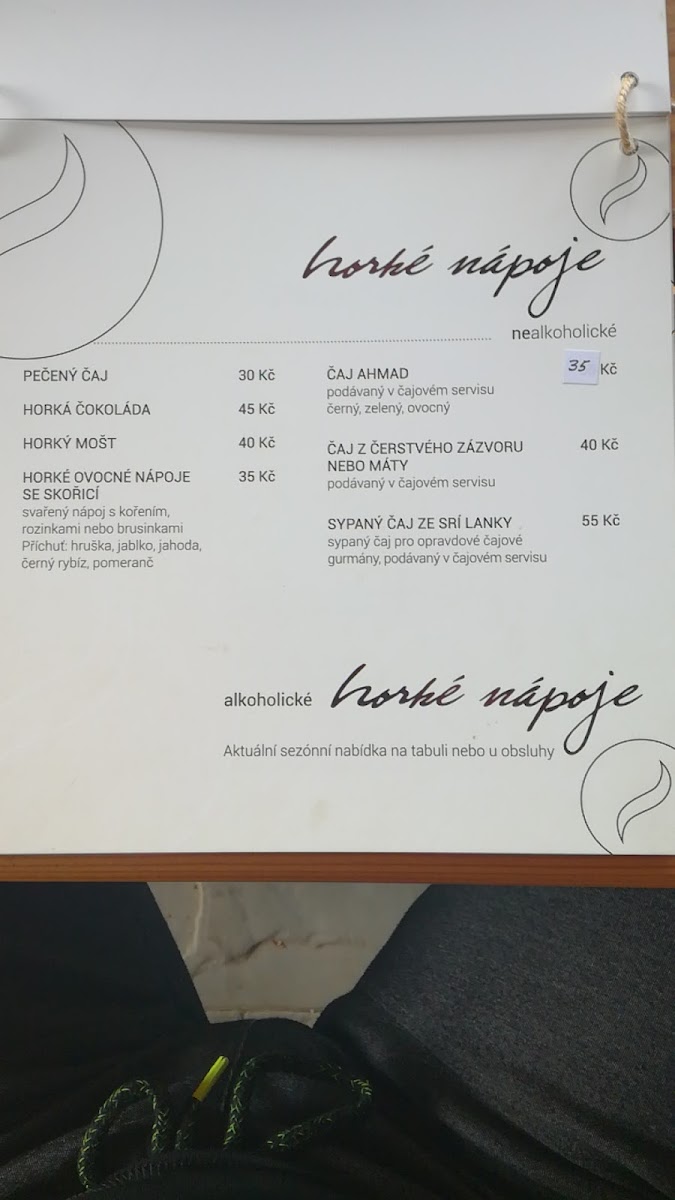 horké nápoje
nealkoholické
PEČENÝ ČAJ 30 Kč
HORKÁ ČOKOLÁDA 45 Kč
HORKÝ MOŠT 40 Kč
HORKÉ OVOCNÉ NÁPOJE 35 Kč
SE SKOŘICÍ
svařený nápoj s kořením,
rozinkami nebo brusinkami
Příchuť: hruška, jablko, jahoda,
černý rybíz, pomeranč
ČAJ AHMAD 35 Kč
podávaný v čajovém servisu
černý, zelený, ovocný
ČAJ Z ČERSTVÉHO ZÁZVORU 40 Kč
NEBO MÁTY
podávaný v čajovém servisu
SYPANÝ ČAJ ZE SRÍ LANKY 55 Kč
sypaný čaj pro opravdové čajové
gurmány, podávaný v čajovém servisu
alkoholické horké nápoje
Aktuální sezónní nabídka na tabuli nebo u obsluhy